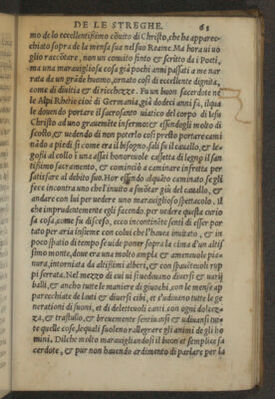 DE LE STREGHE. 61
mo de lo eccellentissimo cõuito di Christo, che ha apparec-
chiato sopra de la mensa sua nel suo Reame Ma hora ui uo
glio raccõtare, non un conuito finto & scritto da i Poeti,
ma una marauigliosa cosa già pochi anni passati a me nar
rata da un grãde huomo, ornato cosi di eccellenti costumi,
come di diuitia & di ricchezze. Fu un buon sacerdote ne
le Alpi Rhetie cioè di Germania, già dodeci anni fà, il qua
le douendo portare il sacrosanto uiatico del corpo di Iesu
Christo ad uno grauemẽte infermo, & essendogli molto di
scosto, & uedendo di non poterlo cosi presto portare cami
nãdo a piedi si come era il bisogno, salì su il cauallo, & le-
gosi al collo ĩ una assai honoreuole cassetta di legno il san
tissimo sacramento, & comincìo a caminare infretta per
satisfare al debito suo. Hor essendo alquãto caminato se gli
fece incontra uno che l'inuito a smõtar giù del cauallo, &
andare con lui per uedere uno marauiglioso spettacolo. Il
che imprudentemente egli facendo, per uedere questa curio
sa cosa, come fu disceso, ecco incontinẽte sentì di esser por
tato per aria insieme con colui che l'haueа inuitato, & in
poco spatio di tempo se uide poner sopra la cima d'un altis
simo monte, doue era una molto ampla & ameneuole pia-
nura, intorniata da altissimi alberi, & con spauẽteuoli rup
pi serrata. Nel mezzo di cui si ꝓuedeuano diuersi & uarij
balli, & ancho tutte le maniere di giuochi, con le mense ap
parecchiate de lauti & diuersi cibi, et s'udiuano tutte le ge
nerationi di suoni, et di deletteuoli canti, con ogni dolcez-
za, & trastullo, & breuemente sentiuansi & udiuansi tut-
te quelle cose, le quali suoleno rallegrare gli animi de gli ho
mini. Dilche molto marauigliandosi il buon et semplice sa
cerdote, & pur non hauendo ardimento di parlare per la